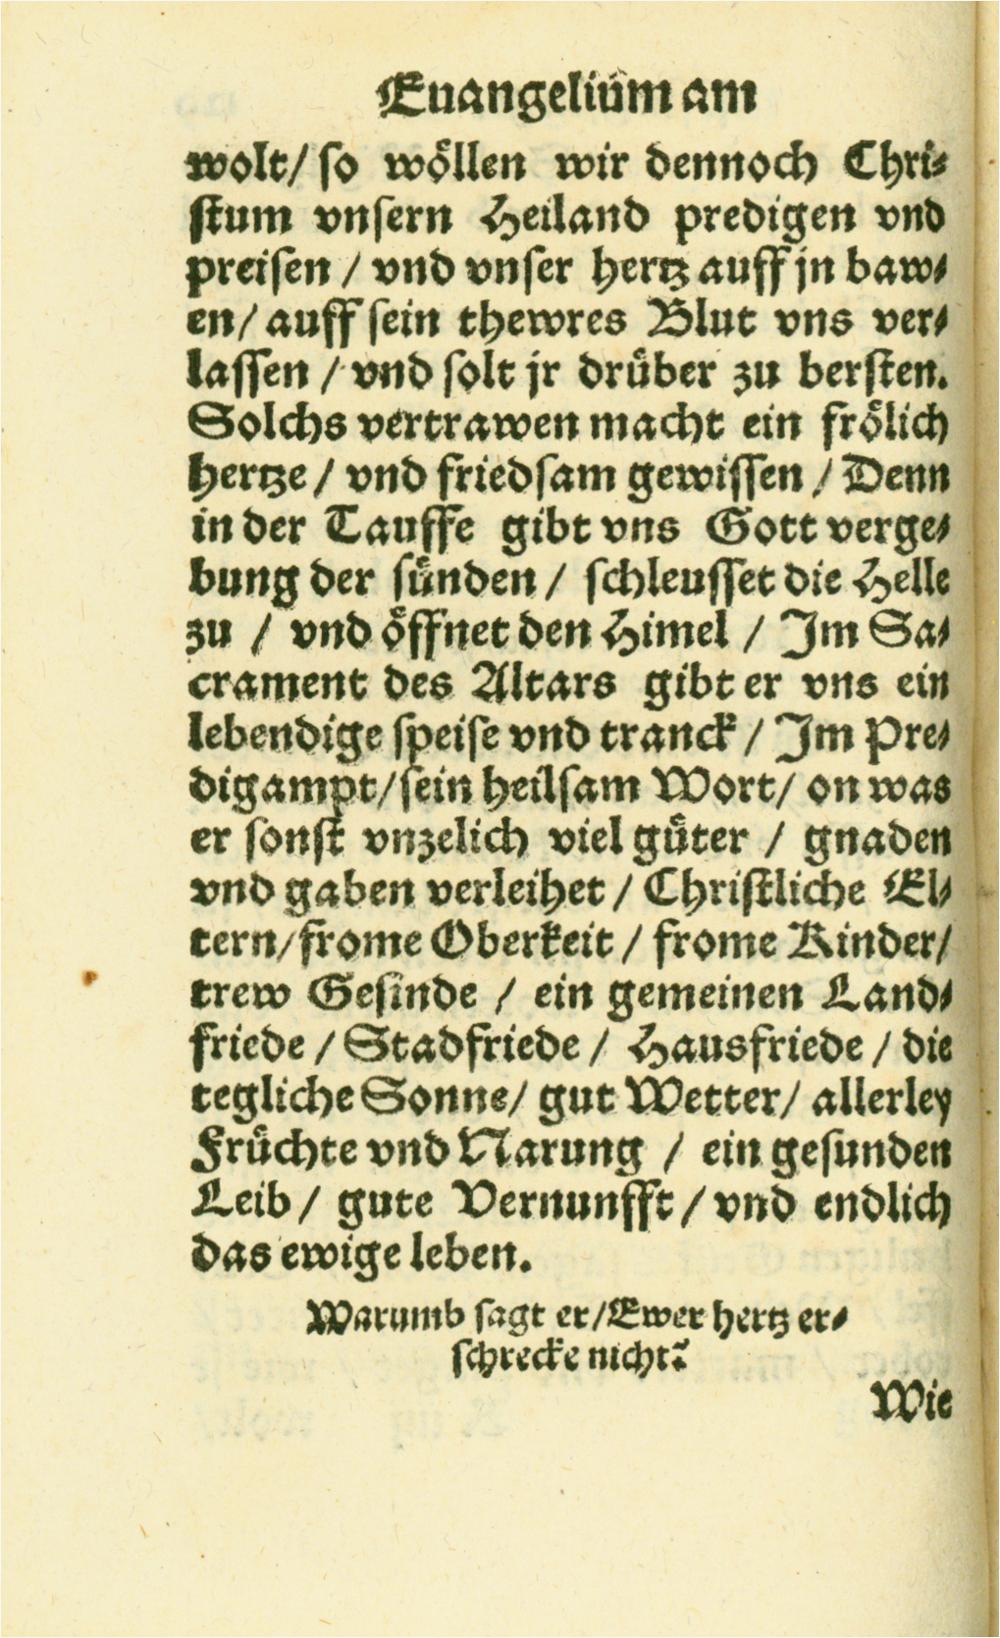 Euangelium am
wolt/ so wöllen wir dennoch Chri-
stum vnsern Heiland predigen vnd
preisen / vnd vnser hertz auff jn baw-
en/ auff sein thewres Blut vns ver-
lassen / vnd solt jr drüber zu bersten.
Solchs vertrawen macht ein frölich
hertze / vnd friedsam gewissen / Denn
in der Tauffe gibt vns Gott verge-
bung der sünden / schleusset die Helle
zu / vnd öffnet den Himel / Im Sa-
crament des Altars gibt er vns ein
lebendige speise vnd tranck / Im Pre-
digampt/ sein heilsam Wort/ on was
er sonst vnzelich viel güter / gnaden
vnd gaben verleihet / Christliche El-
tern/ frome Oberkeit / frome Kinder/
trew Gesinde / ein gemeinen Land-
friede / Stadfriede / Hausfriede / die
tegliche Sonne/ gut Wetter/ allerley
Früchte vnd Narung / ein gesunden
Leib / gute Vernunfft / vnd endlich
das ewige leben.
Warumb sagt er/ Ewer hertz er-
schrecke nicht?
Wie